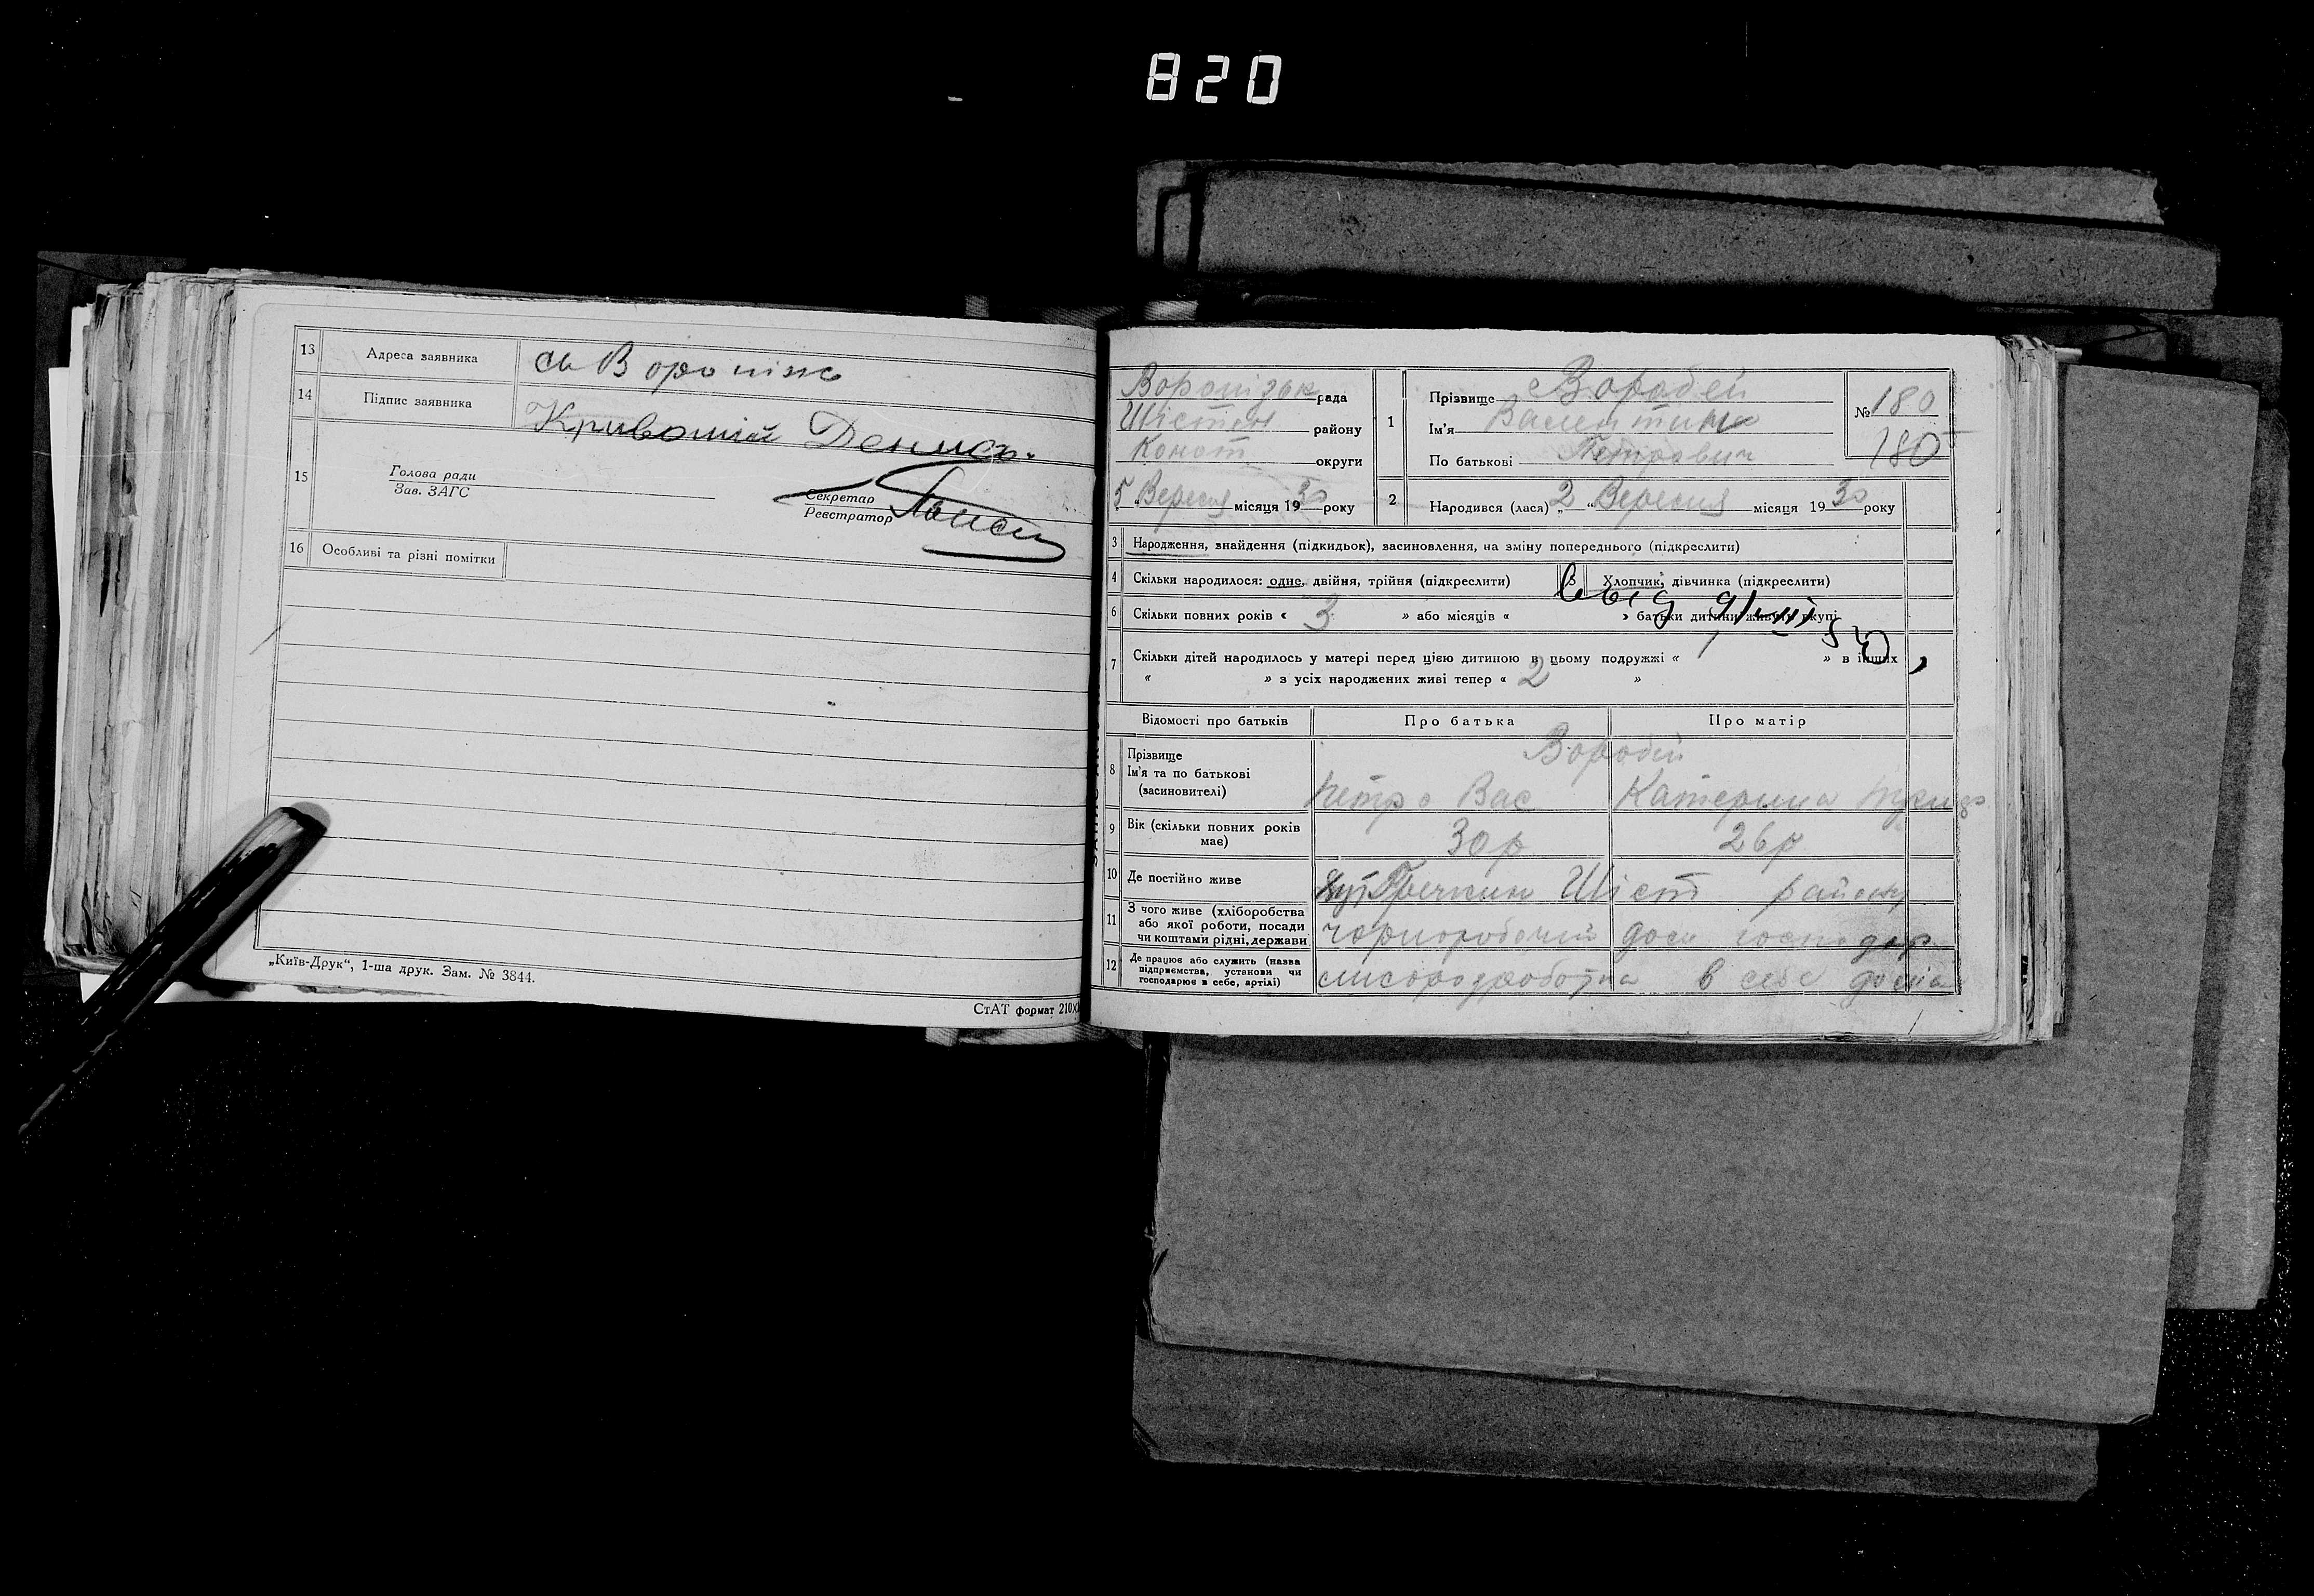 820
13 Адреса заявника
сь Вороніж
14 Підпис заявника
Кривошій Денис
15 Голова ради
Зав. ЗАГС
Секретар
Реєстратор
16 Особливі та різні помітки
„Київ-Друк“, 1-ша друк. Зам. № 3844.
СтАТ формат 210×
Вороніжск рада
району
Конот округи
5 „ Вересня місяця 1930 року
1 Прізвище Воробей
Ім'я Валентин
По батькові Петрович
№ 180
180
2 Народився (лася) „ 2 “ Вересня місяця 1930 року
3 Народження, знайдення (підкидьок), засиновлення, на зміну попереднього (підкреслити)
4 Скільки народилося: одне, двійня, трійня (підкреслити)
5 Хлопчик, дівчинка (підкреслити)
6 Скільки повних років « 3 » або місяців « » батьки дитини живуть вкупі
7 Скільки дітей народилось у матері перед цією дитиною в цьому подружжі « 1 » в інших
« » з усіх народжених живі тепер « 2 »
Відомості про батьків
Про батька
Про матір
8 Прізвище
Ім'я та по батькові
(засиновителі)
Воробей
Петро Вас
Катерина
9 Вік (скільки повних років має)
30 р
26 р
10 Де постійно живе
хут Гречкин Шіст району
11 З чого живе (хліборобства
або якої роботи, посади
чи коштами рідні, держави
чорноробочий
дом господар
12 Де працює або служить (назва
підприємства, установи чи
господарює в себе, артілі)
в себе дома